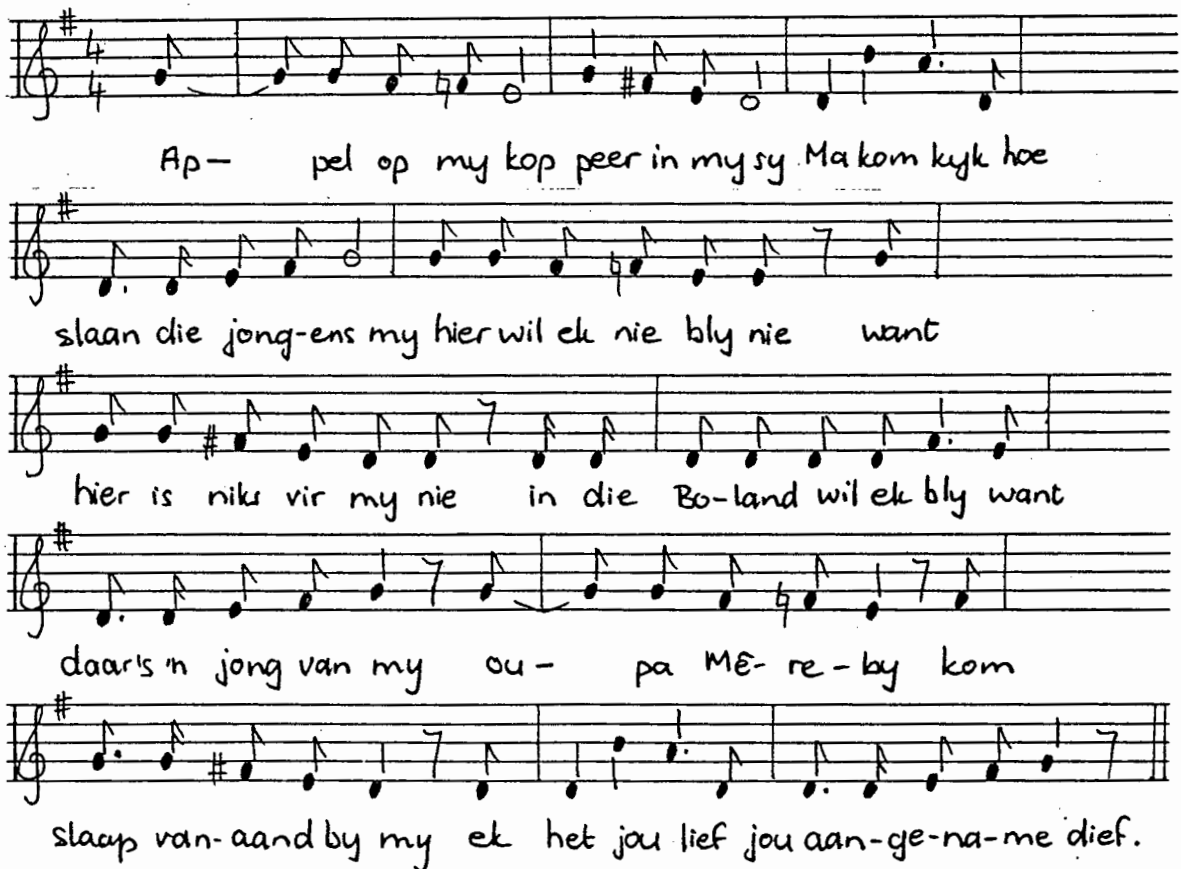 Ap- pel op my kop peer in my sy Ma kom kyk hoe
slaan die jong-ens my hier wil ek nie bly nie want
hier is niks vir my nie in die Bo-land wil ek bly want
daar's 'n jong van my ou- pa MÊ- re-by kom
slaap van-aand by my ek het jou lief jou aan-ge-na-me dief.